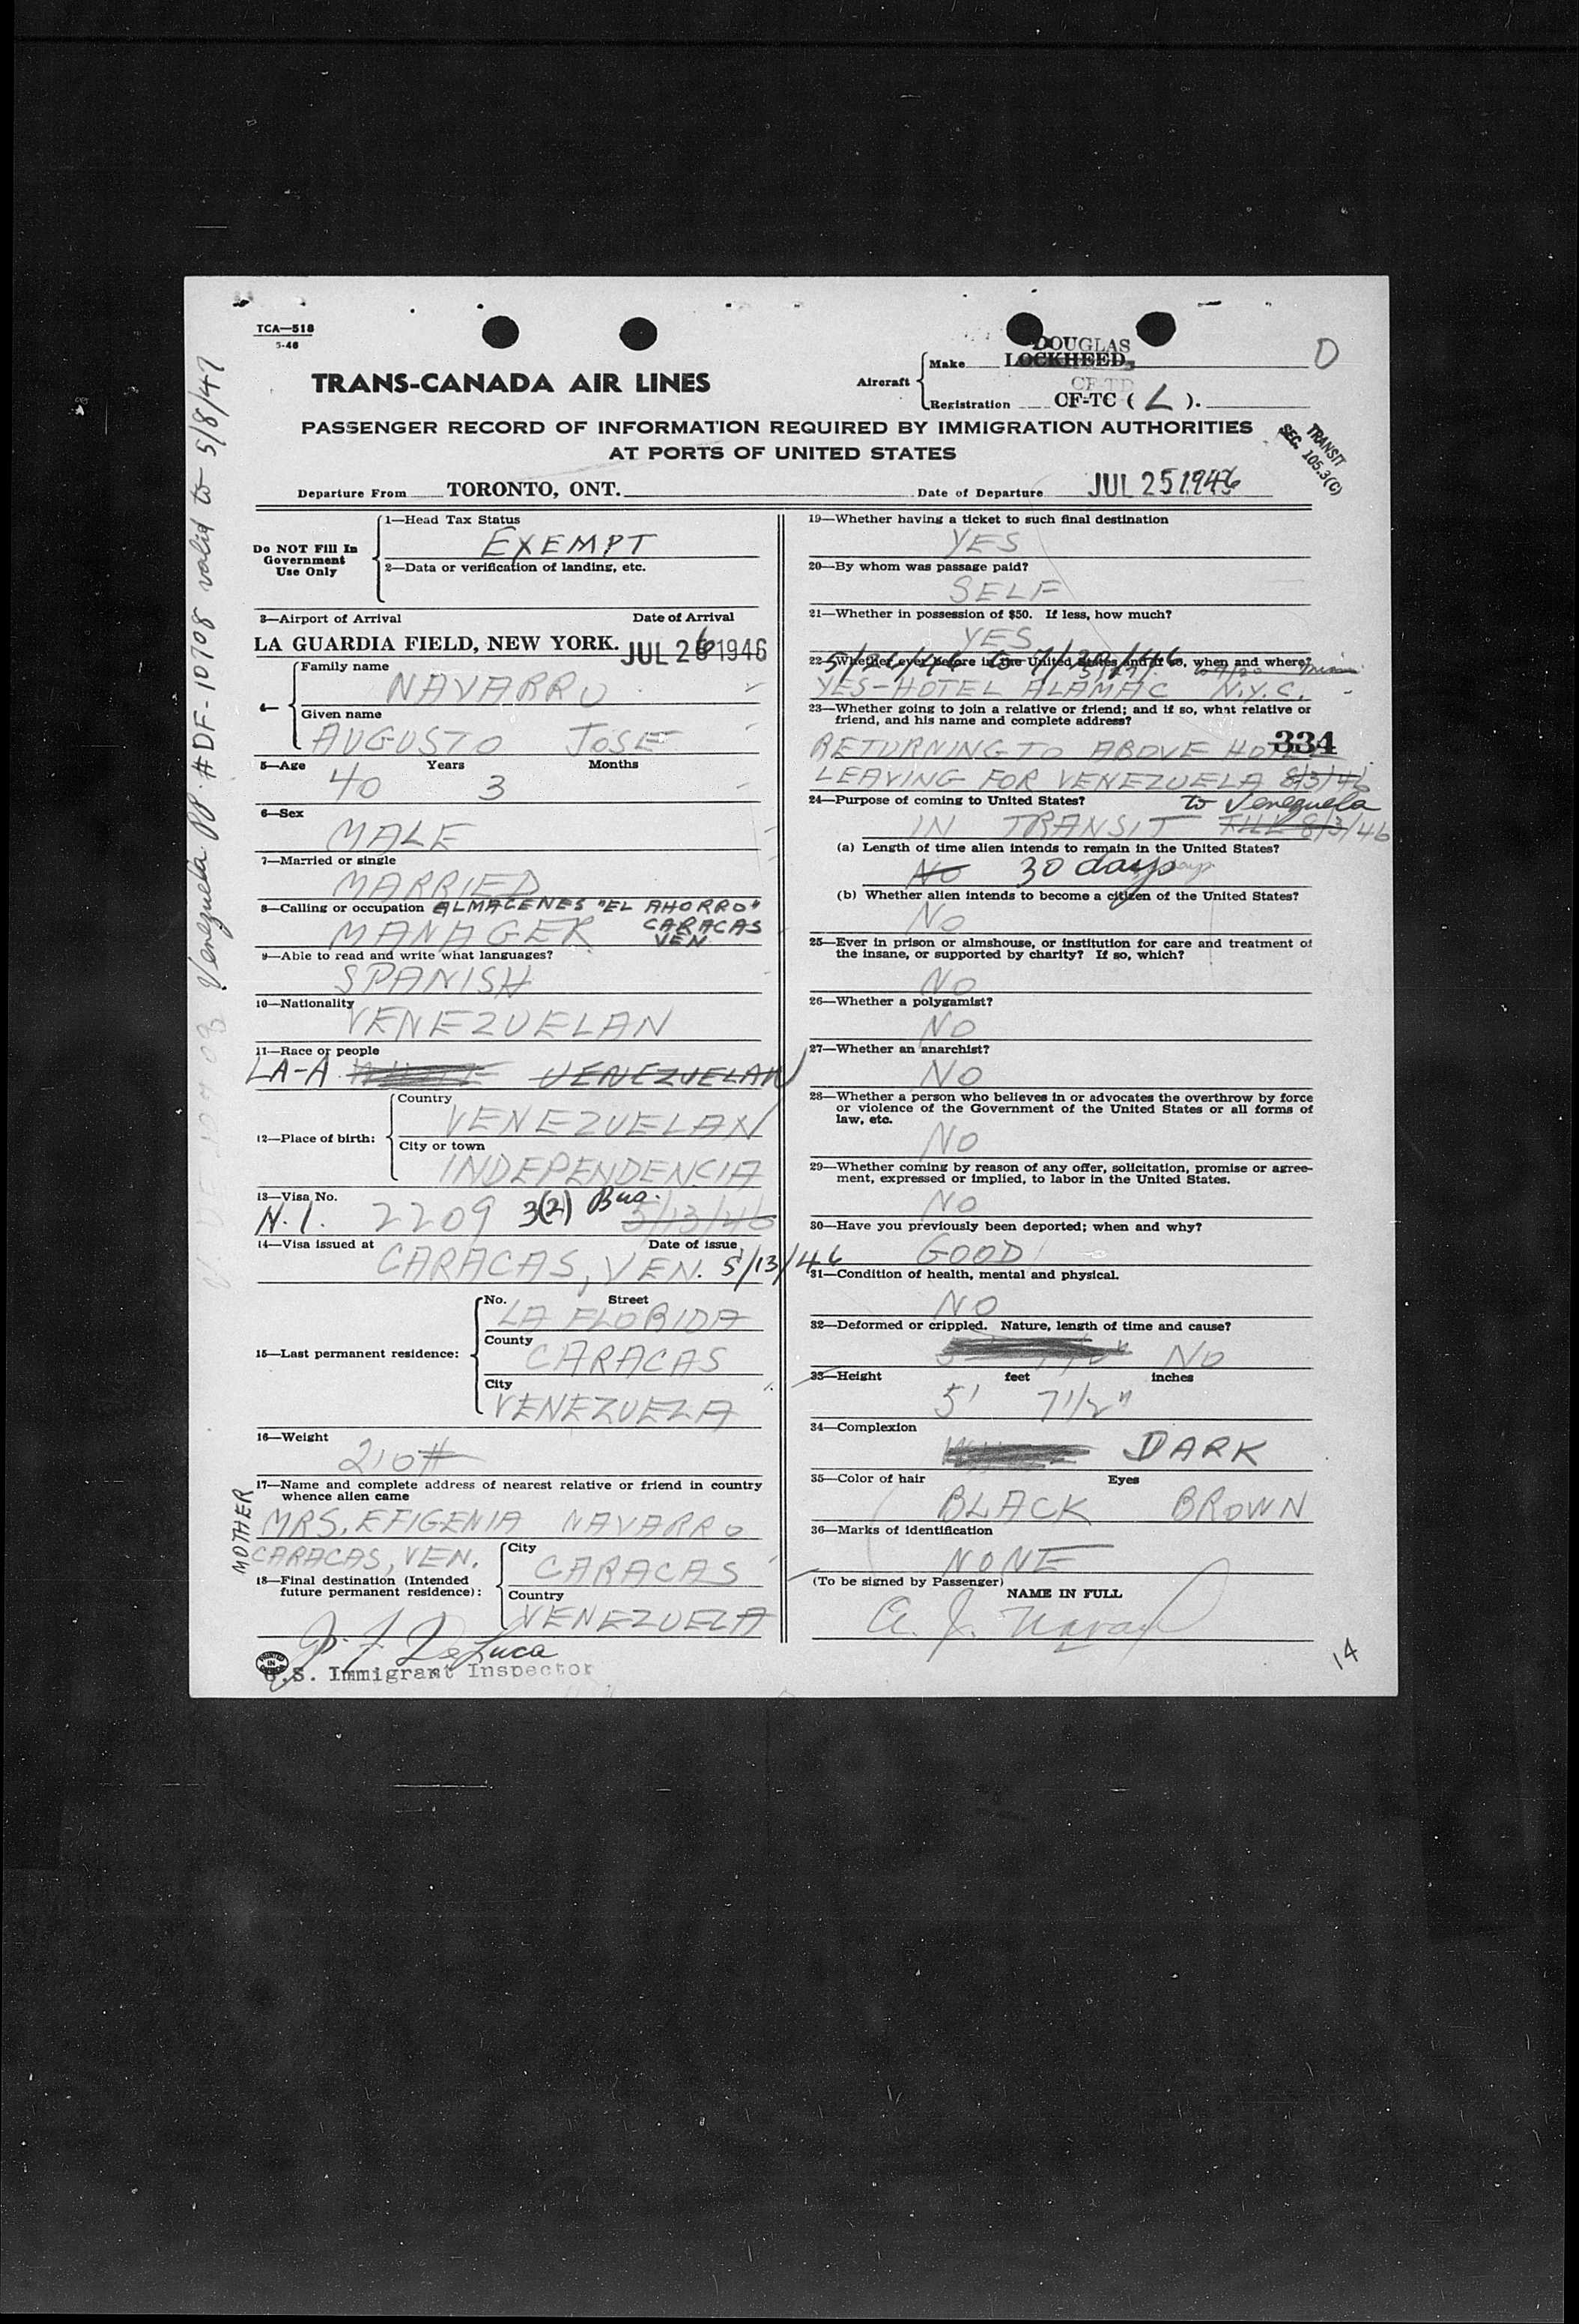 TCA—518
5-46
DOUGLAS
Make LOCKHEED,
O
TRANS-CANADA AIR LINES
Aircraft
CF-TD
Registration CF-TC ( L ).
PASSENGER RECORD OF INFORMATION REQUIRED BY IMMIGRATION AUTHORITIES
AT PORTS OF UNITED STATES
TRANSIT
SEC. 105.3(C)
Departure From TORONTO, ONT.
Date of Departure JUL 25 1946
Venezuela pp. # DF-10708 valid to 5/8/47
Do NOT Fill In
Government
Use Only
1—Head Tax Status
EXEMPT
2—Data or verification of landing, etc.
3—Airport of Arrival Date of Arrival
LA GUARDIA FIELD, NEW YORK. JUL 26 1946
4—
Family name
NAVARRO
Given name
AUGUSTO JOSE
5—Age Years Months
40 3
6—Sex
MALE
7—Married or single
MARRIED
8—Calling or occupation ALMACENES "EL AHORRO"
MANAGER CARACAS
VEN
9—Able to read and write what languages?
SPANISH
10—Nationality
VENEZUELAN
11—Race or people
LA-A VENEZUELAN
12—Place of birth:
Country
VENEZUELAN
City or town
INDEPENDENCIA
13—Visa No.
N.I. 2209 3(2) Bus. 5/13/46
14—Visa issued at Date of issue
CARACAS, VEN. 5/13/46
15—Last permanent residence:
No. Street
LA FLORIDA
County
CARACAS
City
VENEZUELA
16—Weight
210#
17—Name and complete address of nearest relative or friend in country
whence alien came
MOTHER
MRS. EFIGENIA NAVARRO
CARACAS, VEN.
18—Final destination (Intended
future permanent residence):
City
CARACAS
Country
VENEZUELA
J. F. DeLuca
U.S. Immigrant Inspector
PRINTED IN CANADA
19—Whether having a ticket to such final destination
YES
20—By whom was passage paid?
SELF
21—Whether in possession of $50. If less, how much?
YES
22—Whether ever before in the United States and if so, when and where?
YES-HOTEL ALAMAC N.Y.C.
23—Whether going to join a relative or friend; and if so, what relative or
friend, and his name and complete address?
334
RETURNING TO ABOVE HOTEL
LEAVING FOR VENEZUELA 8/3/46
24—Purpose of coming to United States? to Venezuela
IN TRANSIT TILL 8/3/46
(a) Length of time alien intends to remain in the United States?
NO 30 days
(b) Whether alien intends to become a citizen of the United States?
NO
25—Ever in prison or almshouse, or institution for care and treatment of
the insane, or supported by charity? If so, which?
NO
26—Whether a polygamist?
NO
27—Whether an anarchist?
NO
28—Whether a person who believes in or advocates the overthrow by force
or violence of the Government of the United States or all forms of
law, etc.
NO
29—Whether coming by reason of any offer, solicitation, promise or agree-
ment, expressed or implied, to labor in the United States.
NO
30—Have you previously been deported; when and why?
GOOD
31—Condition of health, mental and physical.
NO
32—Deformed or crippled. Nature, length of time and cause?
NO
33—Height feet inches
5' 7 1/2"
34—Complexion
DARK
35—Color of hair Eyes
BLACK BROWN
36—Marks of identification
NONE
(To be signed by Passenger)
NAME IN FULL
A. J. Navarro
14